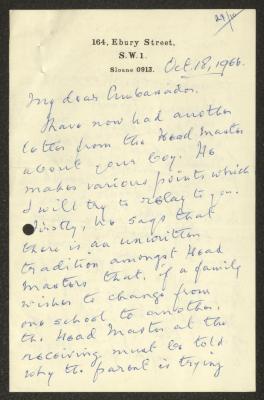 24/10
164, Ebury Street,
S.W.1.
Sloane 0913.
Oct 18, 1966.
My dear Ambassador.
I have now had another
letter from the Head Master
about your boy. He
makes various points which
I will try to relay to you.
Firstly, he says that
there is an unwritten
tradition amongst Head
Masters that, if a family
wishes to change from
one school to another,
the Head Master at the
receiving must be told
why the parent is trying